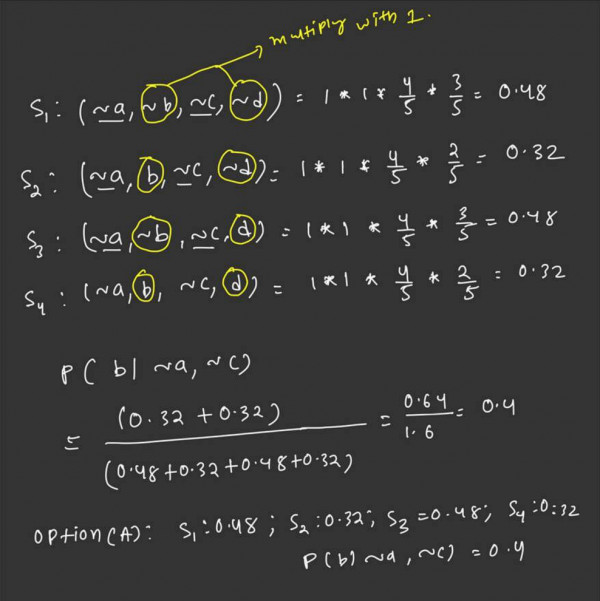 multiply with 1.
S₁ : (~a, ~b, ~c, ~d) = 1 * 1 * 4/5 * 3/5 = 0.48
S₂ : (~a, b, ~c, ~d) = 1 * 1 * 4/5 * 2/5 = 0.32
S₃ : (~a, ~b, ~c, d) = 1 * 1 * 4/5 * 3/5 = 0.48
S₄ : (~a, b, ~c, d) = 1 * 1 * 4/5 * 2/5 = 0.32
P( b | ~a, ~c)
= (0.32 + 0.32) / (0.48+0.32+0.48+0.32) = 0.64/1.6 = 0.4
option(A): S₁:0.48 ; S₂:0.32; S₃=0.48; S₄:0.32
P(b) ~a, ~c) = 0.4